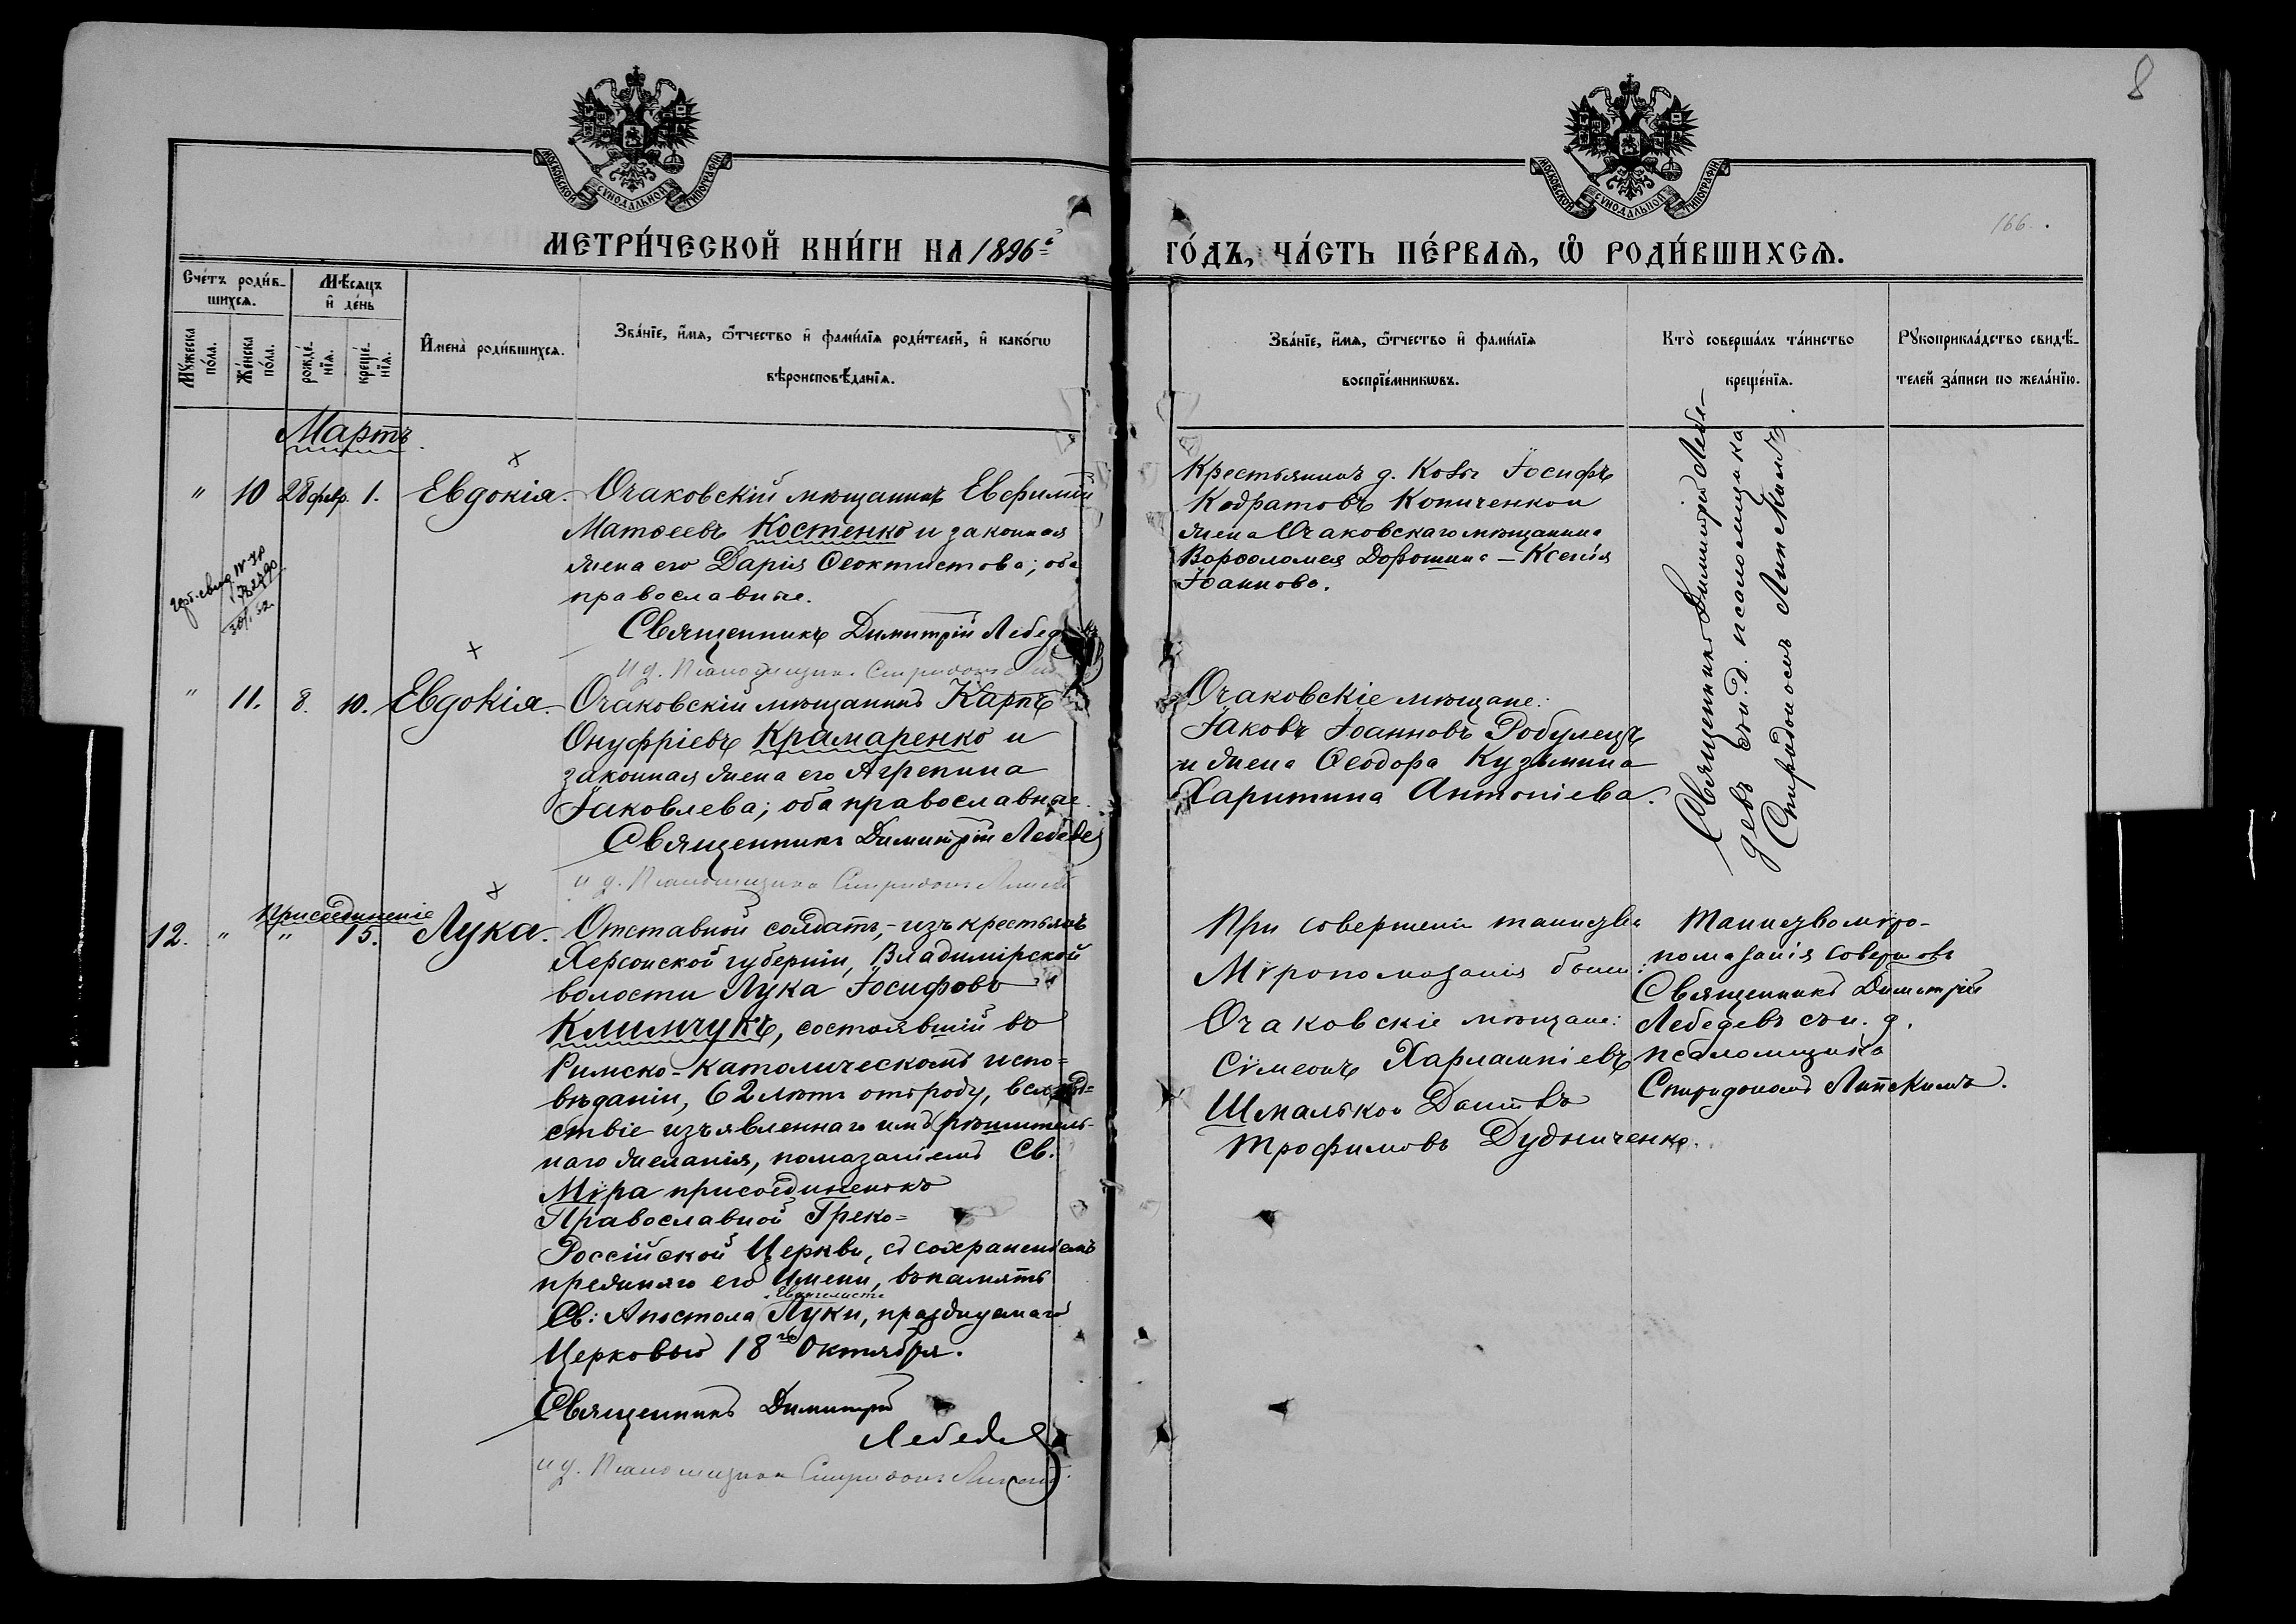 8
166.
МОСКОВСКОЙ СѴНОДАЛЬНОЙ ТИПОГРАФІИ
МОСКОВСКОЙ СѴНОДАЛЬНОЙ ТИПОГРАФІИ
МЕТРИ́ЧЕСКОЙ КНИ́ГИ НА 1896й
ГО́ДЪ, ЧА́СТЬ ПЕ́РВАѦ, Ѡ҆ РОДИ́ВШИХСѦ.
Сче́тъ роди́в-
шихсѧ.
Мѣ́сѧцъ
и҆ де́нь
Мꙋ́жеска
по́ла.
Же́нска
по́ла.
рожде́-
нїѧ.
креще́-
нїѧ.
И҆мена̀ роди́вшихсѧ.
Зва́нїе, и҆́мѧ, ѻ҆́тчество и҆ фами́лїѧ роди́телей, и҆ како́гѡ
вѣроисповѣ́данїѧ.
Зва́нїе, и҆́мѧ, ѻ҆́тчество и҆ фами́лїѧ
воспрїе́мникѡвъ.
Кто̀ соверша́лъ та́инство
креще́нїѧ.
Рꙋкоприкла́дство свидѣ́-
телей за́писи по жела́нїю.
Мартъ
" 10 28 февр. 1. Евдокія.
Очаковскій мѣщанинъ Евфимій
Матѳеевъ Костенко и законная
жена его Дарія Ѳеоктистова; оба
православные.
Священникъ Димитрій Лебед
И д. Псаломщика Спиридонъ
Крестьянинъ д. Кобл Іосифъ
Кодратовъ Копиченко и
жена Очаковскаго мѣщанина
Варѳоломея Дорошина - Ксенія
Іоаннова.
Священникъ Димитрій Лебе-
девъ съ и. д. псаломщика
Спиридономъ Липскимъ.
" 11. 8. 10. Евдокія.
Очаковскій мѣщанинъ Карпъ
Онуфріевъ Крамаренко и
законная жена его Агрепина
Іаковлева; оба православные.
Священникъ Димитрій Лебедев
и д. Псаломщика Спиридонъ Липскій
Очаковскіе мѣщане:
Іаковъ Іоанновъ Робулецъ
и жена Ѳеодора Кузьмина
Харитина Антоніева.
Присоединеніе
12. " " 15. Лука.
Отставной солдатъ, - изъ крестьянъ
Херсонской губерніи, Владимірской
волости Лука Іосифовъ
Климчукъ, состоявшій въ
Римско-Католическомъ испо-
вѣданіи, 62 лѣтъ отъ роду, вслѣд-
ствіе изъявленнаго имъ рѣшитель-
наго желанія, помазаніемъ Св.
Мѵра присоединенъ къ
Православной Греко-
Россійской Церкви, съ сохраненіемъ
прежняго его имени, въ память
Евангелиста
Св: Апостола Луки, празднуемаго
Церковью 18го Октября.
Священникъ Димитрій
Лебедев
и д. Псаломщика Спиридонъ Липскій
При совершеніи таинства
Мѵропомазанія были:
Очаковскіе мѣщане:
Сімеонъ Харлампіевъ
Шмалько и Даніилъ
Трофимовъ Дудниченко.
Таинство мѵро-
помазанія совершилъ
Священникъ Димитрій
Лебедевъ съ и. д.
псаломщика
Спиридономъ Липскимъ.